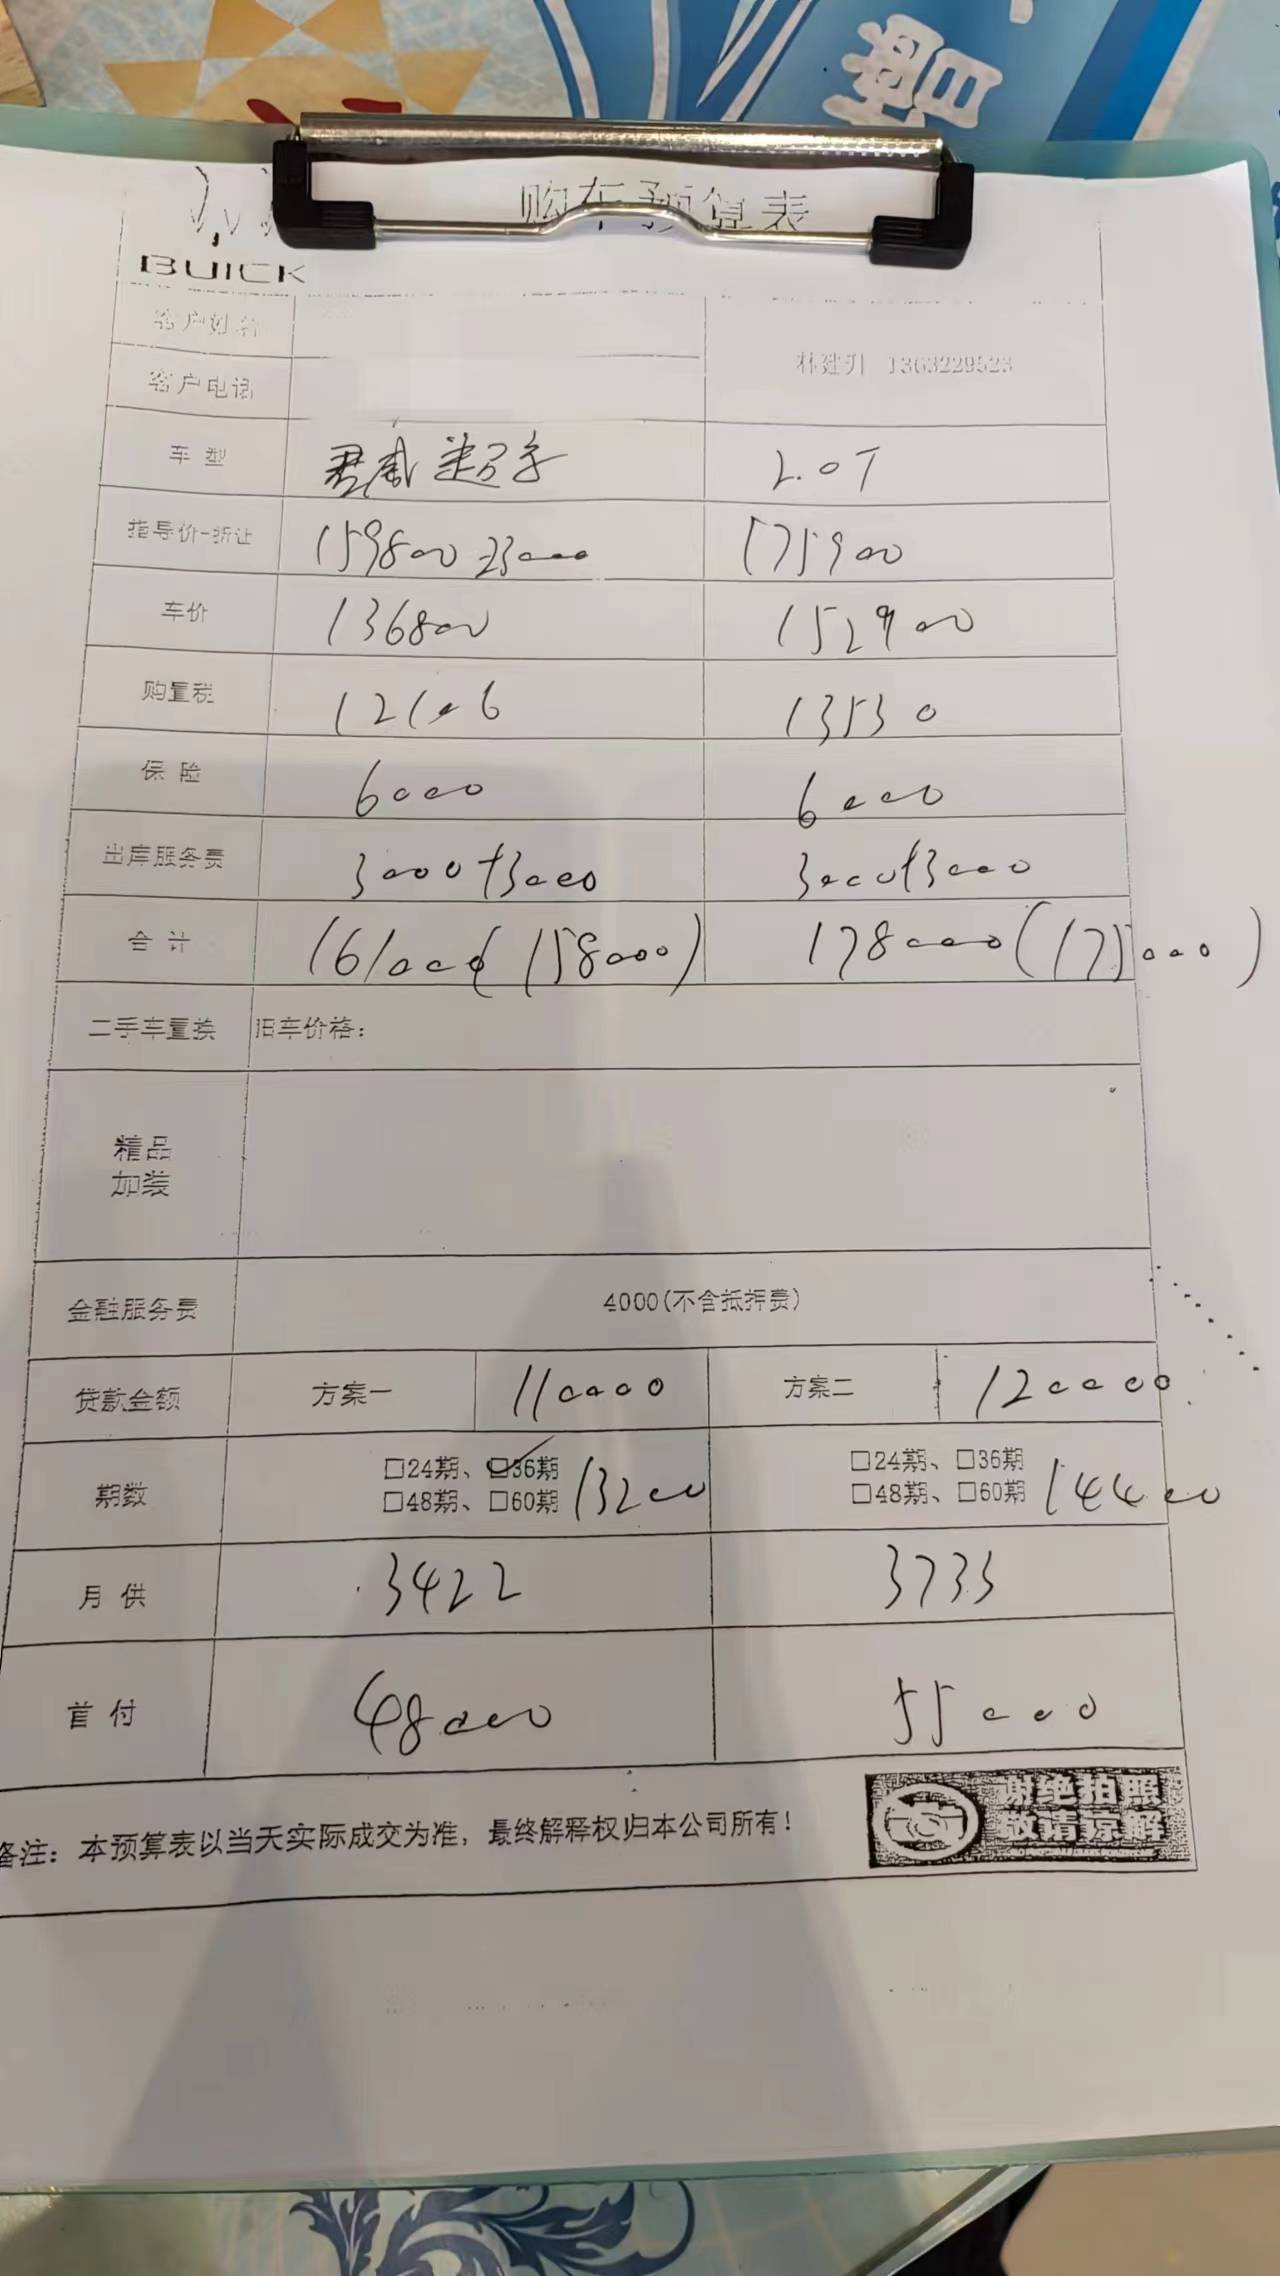 购车预算表
BUICK
客户姓名
客户电话
林建升 1363229523
车型 君威 2.0T
指导价-折让 159800-23000 175900
车价 136800 152900
购置税 12106 13530
保险 6000 6000
出库服务费 3000+3000 3000+3000
合计 161000(158000) 178000(175000)
二手车置换 旧车价格：
精品
加装
金融服务费 4000(不含抵押费)
贷款金额 方案一 110000 方案二 120000
期数 □24期、□36期 □24期、□36期
□48期、□60期 13200 □48期、□60期 14400
月供 3422 3733
首付 48000 55000
备注：本预算表以当天实际成交为准，最终解释权归本公司所有！
谢绝拍照
敬请谅解